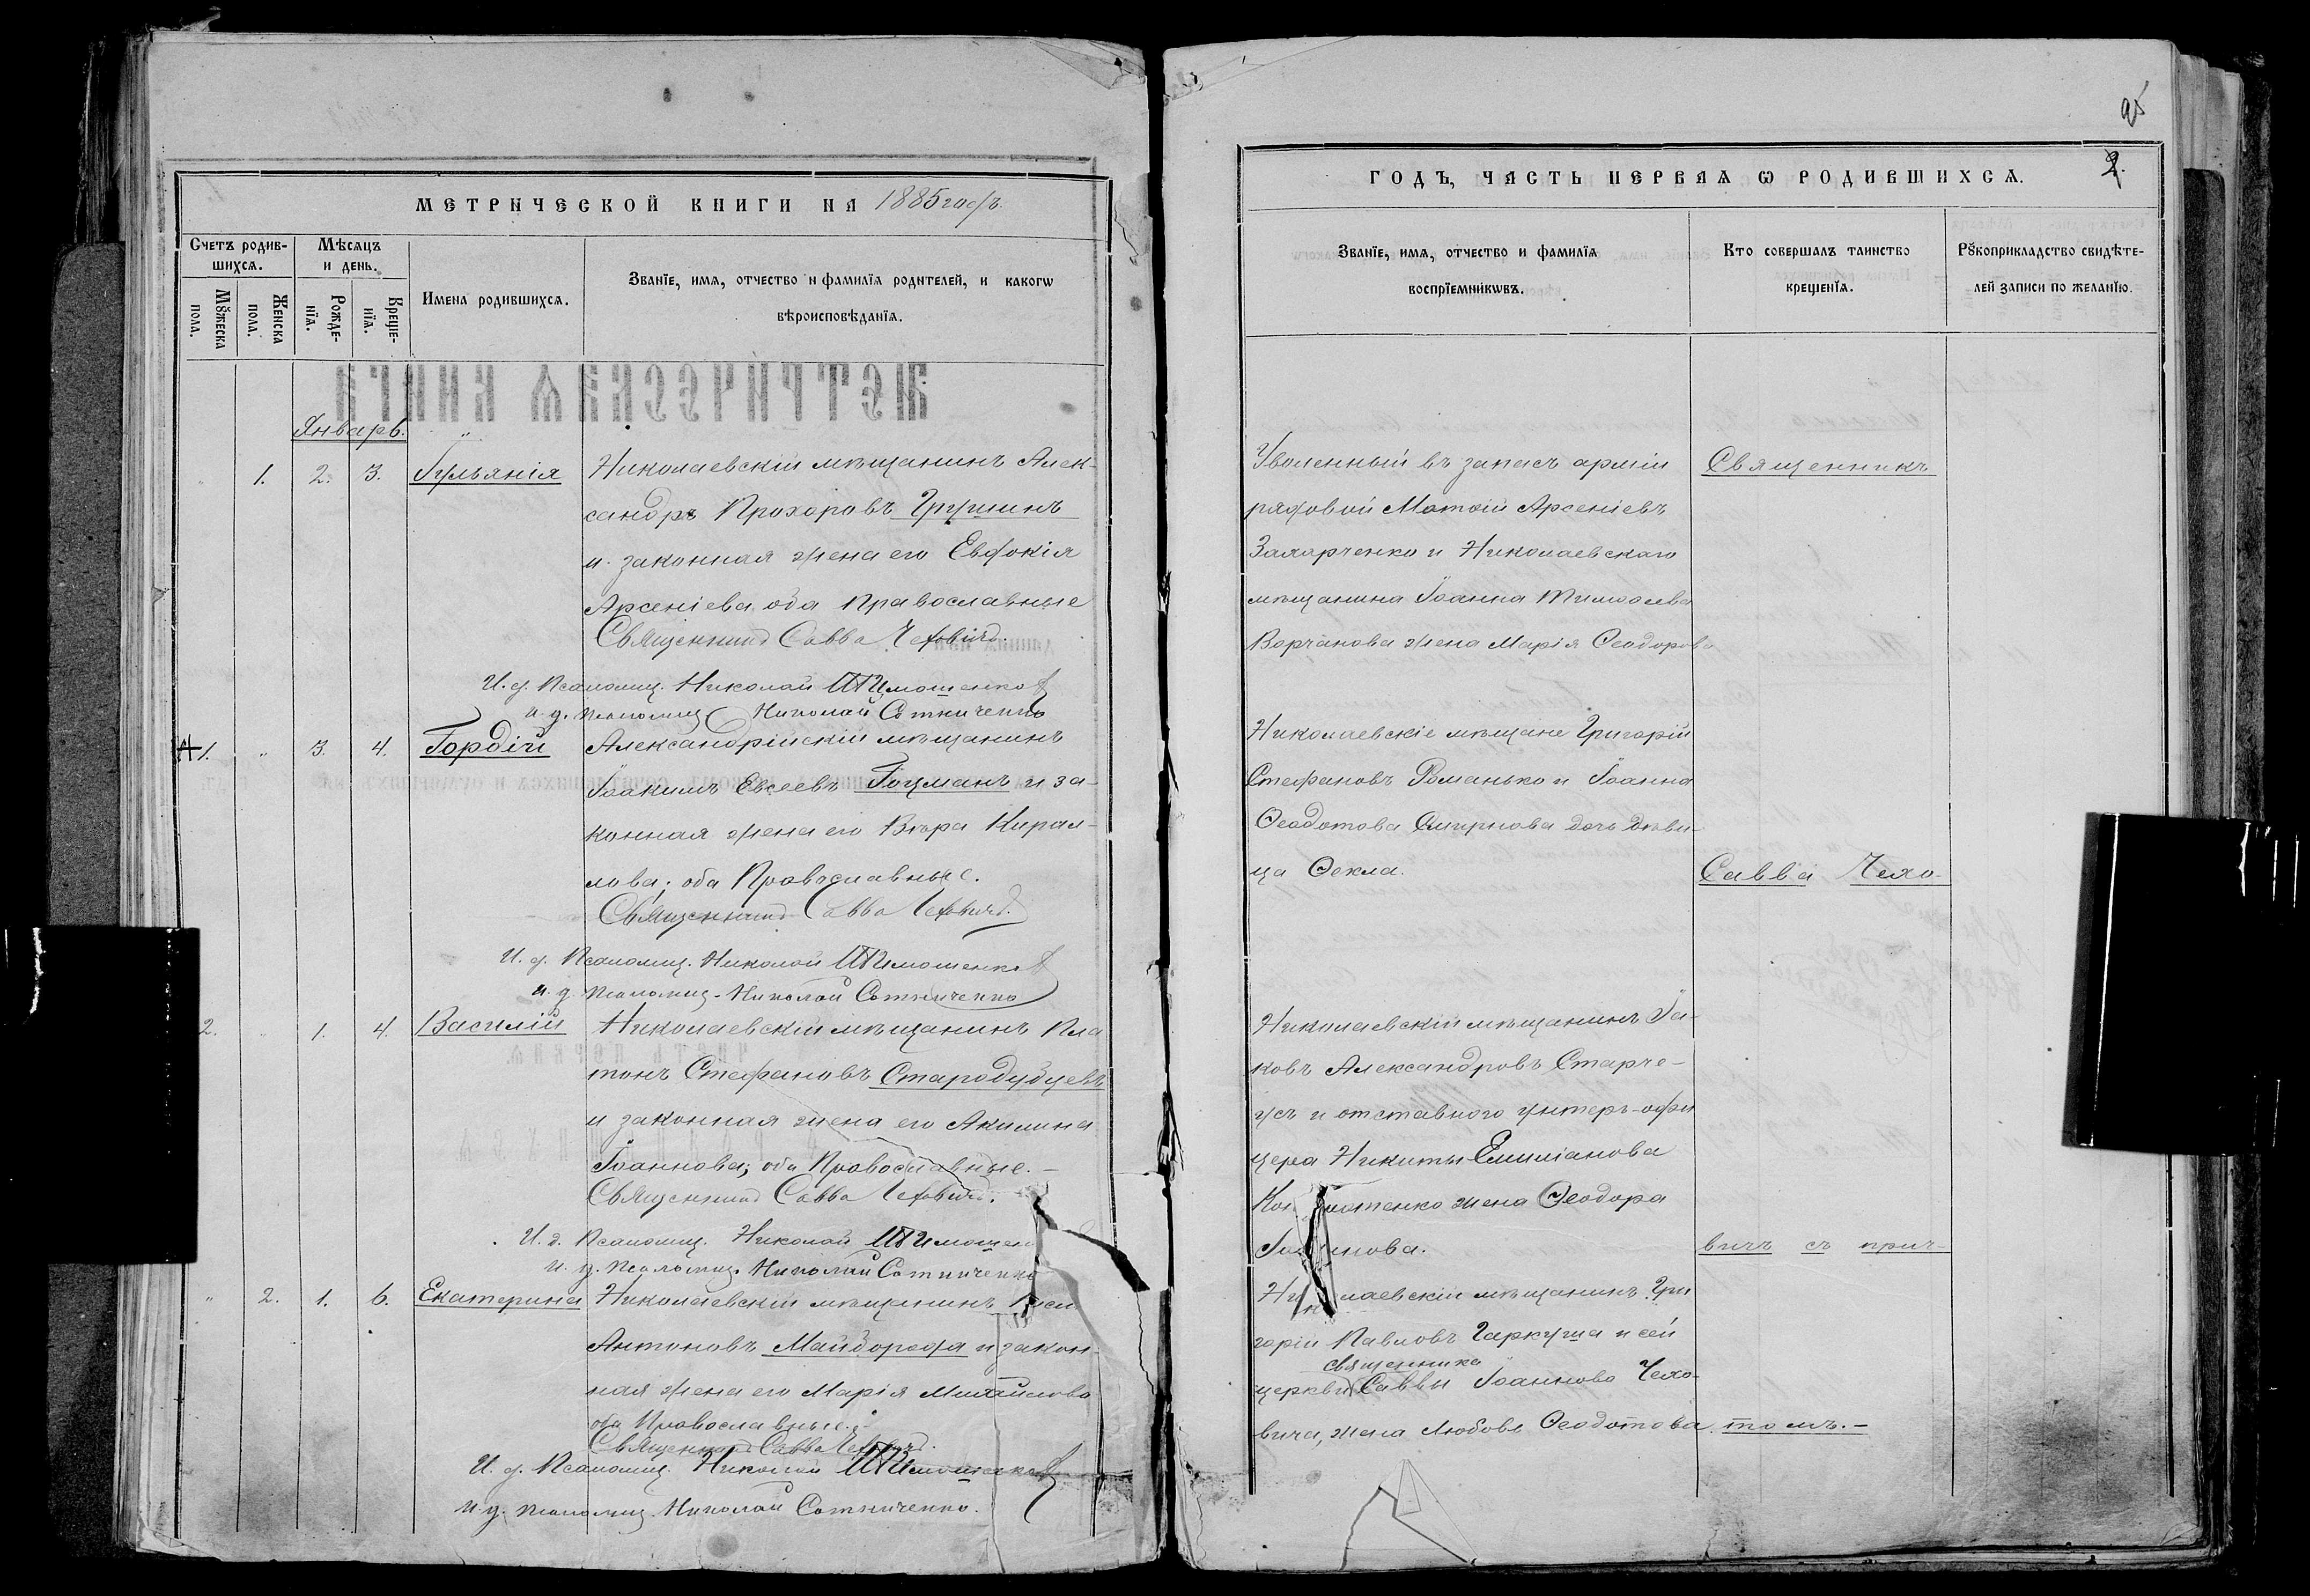 МЕТРИЧЕСКОЙ КНИГИ НА 1885 годъ.
Счетъ родив-
шихся.
Мѣсяцъ
и день.
Мꙋжеска
пола.
Женска
пола.
Рожде-
нїя.
Креще-
нїя.
Имена родившихся.
Званїе, имя, отчество и фамилїя родителей, и какогѡ
вѣроисповѣданїя.
Январь.
" 1. 2. 3. Іульянія
Николаевскій мѣщанинъ Алек-
сандръ Прохоровъ Грушинъ
и законная жена его Евдокія
Арсеніева, оба Православные
Священникъ Савва Чеховичъ.
И. д. Псаломщ. Николай Тимошенко
и. д. псаломщ Николай Сотниченко
1. " 3. 4. Гордій
Александрійскій мѣщанинъ
Іоакимъ Евсеевъ Гоцманъ и за-
конная жена его Вѣра Кирил-
лова; оба Православные.
Священникъ Савва Чеховичъ.
И. д. Псаломщ. Николай Тимошенко
и. д. псаломщ. Николай Сотниченко
2. " 1. 4. Василій
Николаевскій мѣщанинъ Пла
тонъ Стефановъ Стародубцевъ
и законная жена его Акилина
Іоаннова; оба Православные.
Священникъ Савва Чеховичъ.
И. д. Псаломщ. Николай Тимошен
и. д. псаломщ. Николай Сотниченко
" 2. 1. 6. Екатерина
Николаевскій мѣщанинъ
Антоновъ Майборода и закон-
ная жена его Марія Михайлова
оба Православные.
Священникъ Савва Чеховичъ.
И. д. Псаломщ. Николай Тимошенко
и. д. псаломщ. Николай Сотниченко.
95
2.
ГОДЪ, ЧАСТЬ ПЕРВАЯ Ѡ РОДИВШИХСЯ.
Званїе, имя, отчество и фамилїя
воспрїемникѡвъ.
Кто совершалъ таинство
крещенїя.
Рꙋкоприкладство свидѣте-
лей записи по желанїю.
Уволенный въ запасъ арміи
рядовой Матѳій Арсеніевъ
Захарченко и Николаевскаго
мѣщанина Іоанна Тимоѳева
Ворчанова жена Марія Ѳеодорова
Николаевскіе мѣщане Григорій
Стефановъ Романько и Іоанна
Ѳеодотова Смирнова дочь дѣви-
ца Ѳекла.
Николаевскій мѣщанинъ Іа-
ковъ Александровъ Старче-
усъ и отставного унтеръ-офи
цера Никиты Емиліанова
жена Ѳеодора
Николаевскій мѣщанинъ Гри
горій Павловъ Гаркуша и сей
церкви священника Саввы Іоаннова Чехо-
вича, жена Любовь Ѳеодотова.
Священникъ
Савва Чехо-
вичъ съ прич-
томъ.-